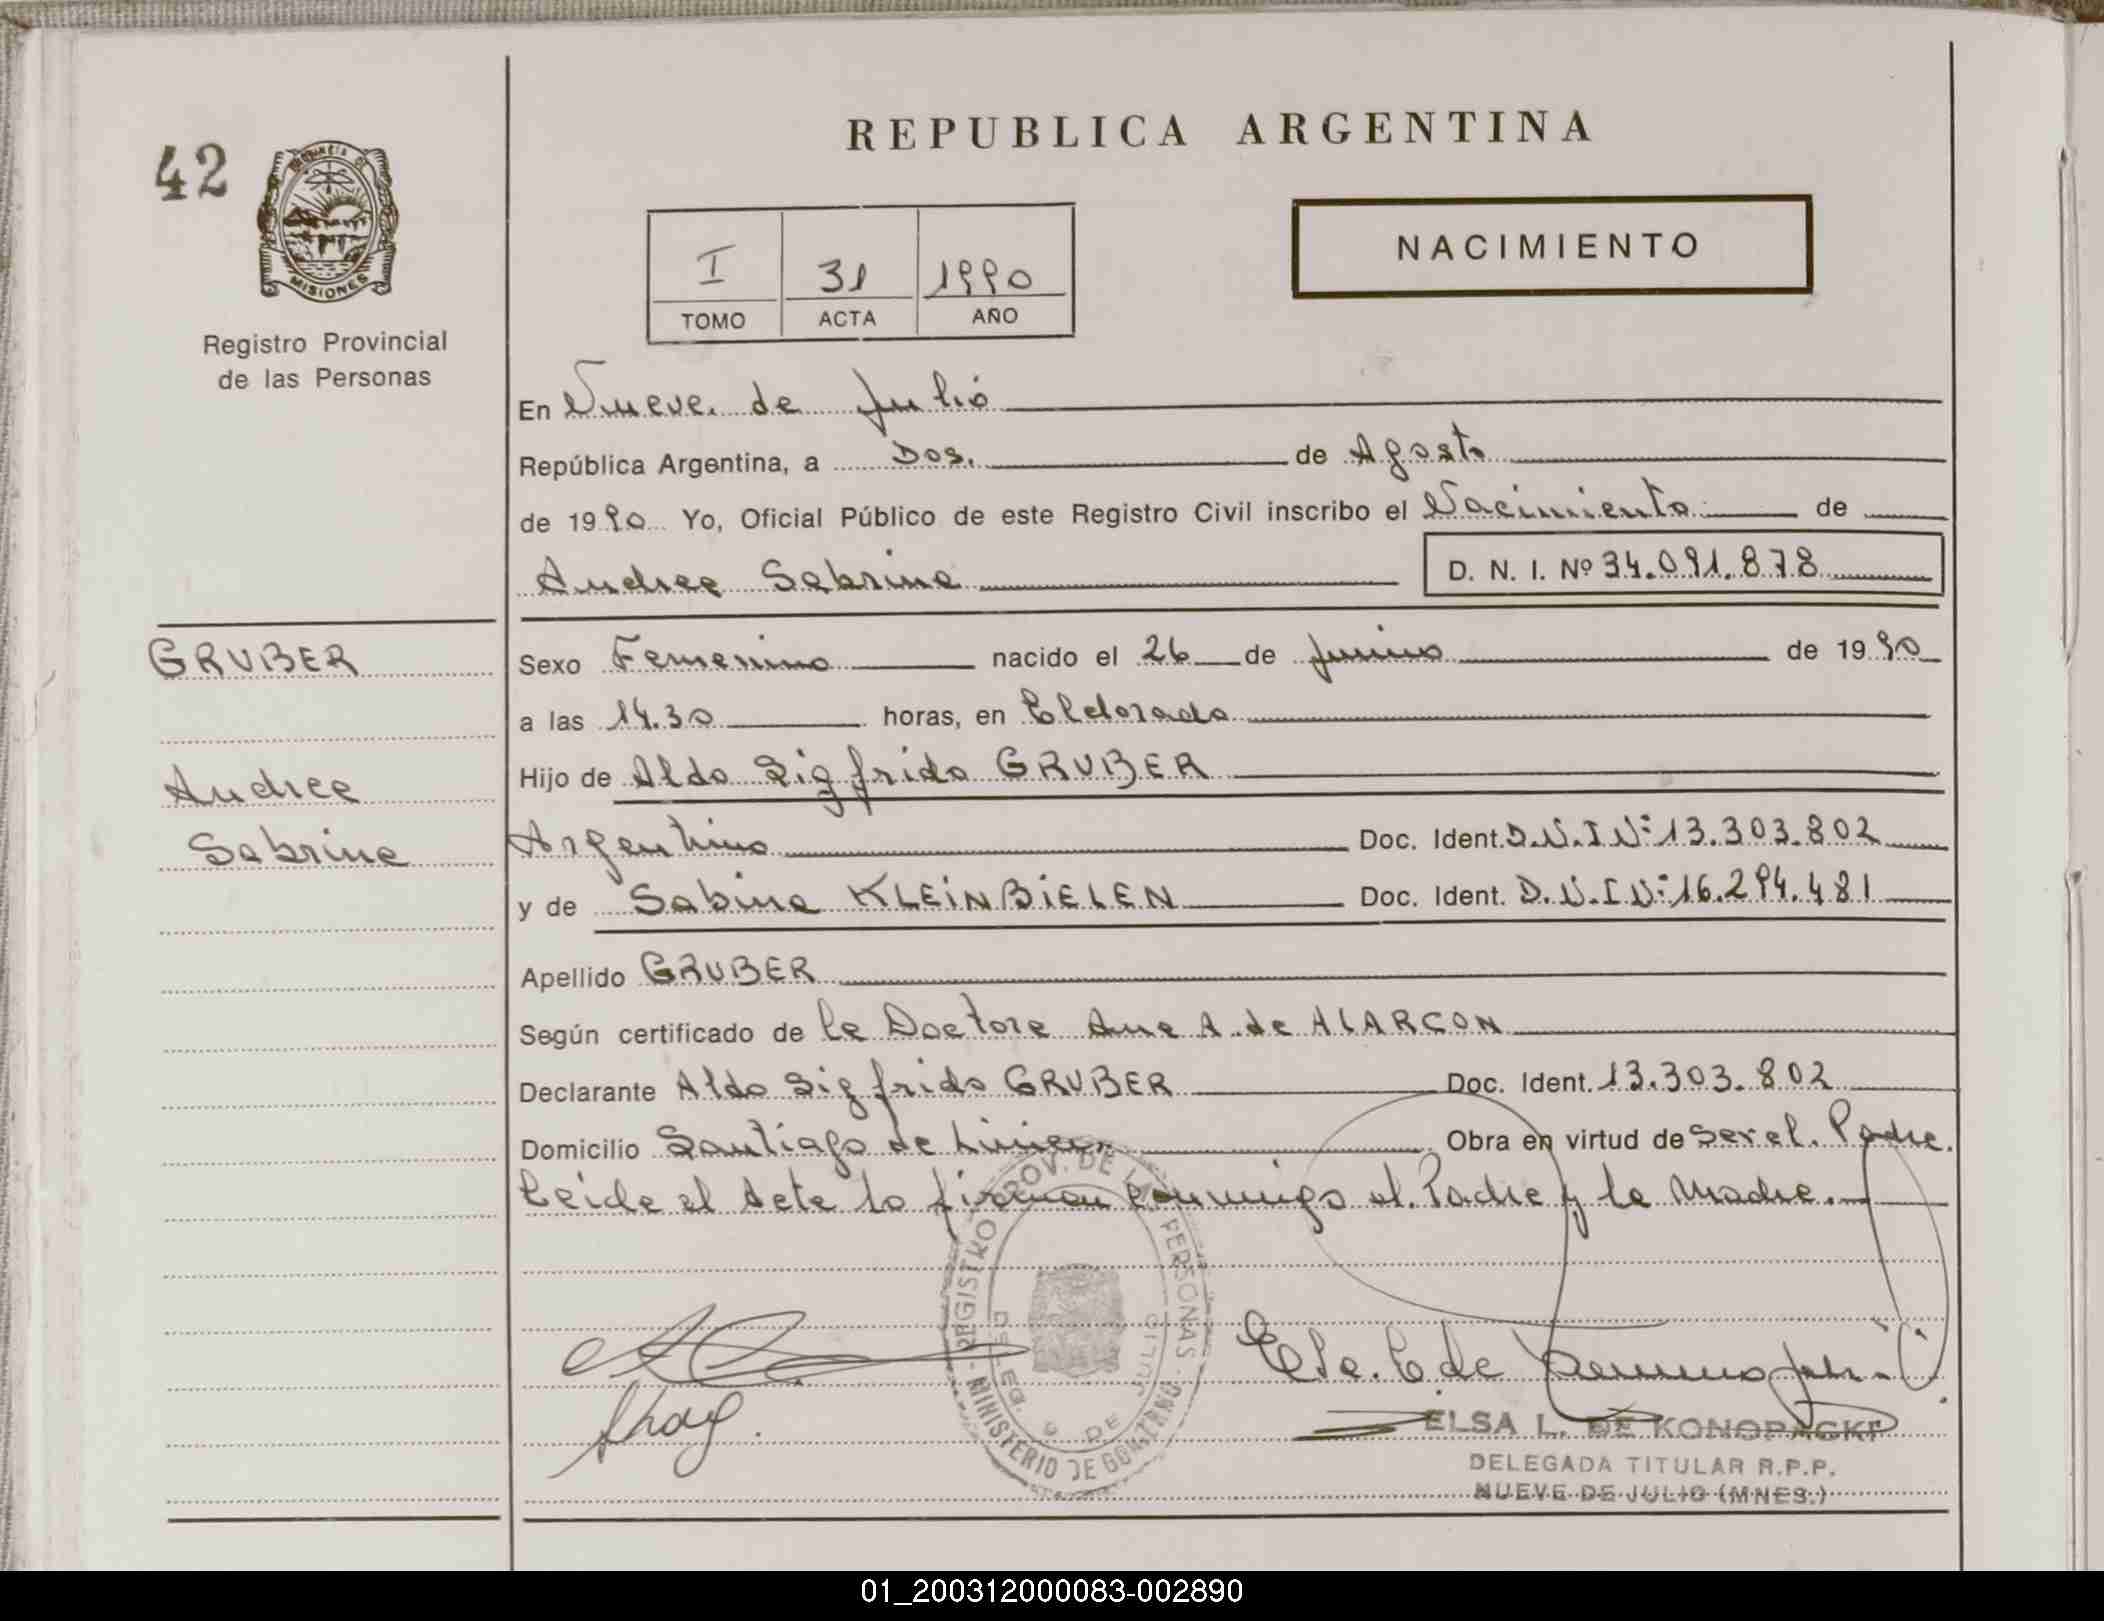 42
PROVINCIA DE
MISIONES
Registro Provincial
de las Personas
REPUBLICA ARGENTINA
I 31 1990
TOMO ACTA AÑO
NACIMIENTO
En Nueve de Julio
República Argentina, a Dos. de Agosto
de 1990 Yo, Oficial Público de este Registro Civil inscribo el Nacimiento de
Andrea Sabrina D. N. I. Nº 34.091.878
GRUBER
Andrea
Sabrina
Sexo Femenino nacido el 26 de Junio de 1990
a las 14.30 horas, en Eldorado
Hijo de Aldo Sigfrido GRUBER
Argentino Doc. Ident. D.N.I Nº 13.303.802
y de Sabina KLEINBIELEN Doc. Ident. D.N.I Nº 16.294.481
Apellido GRUBER
Según certificado de la Doctora Ana A. de ALARCON
Declarante Aldo Sigfrido GRUBER Doc. Ident. 13.303.802
Domicilio Santiago de Liniers Obra en virtud de ser el Padre.
Leida el Acta la firman conmigo el Padre y la Madre.
REGISTRO PROV. DE LAS PERSONAS - MINISTERIO DE GOBIERNO -
DELEG. 9 DE JULIO
ELSA L. DE KONOPACKI
DELEGADA TITULAR R.P.P.
NUEVE DE JULIO (MNES.)
01_200312000083-002890